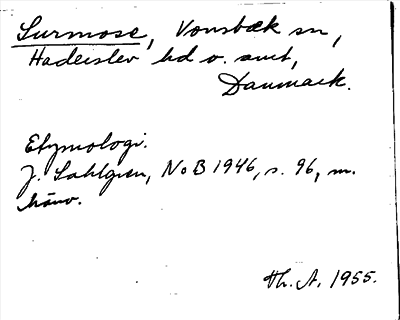 Surmose, Vonsbæk sn,
Haderslev hd o. amt,
Danmark.
Etymologi.
J. Sahlgren, NoB 1946, s. 96, m.
hänv.
Th. A. 1955.